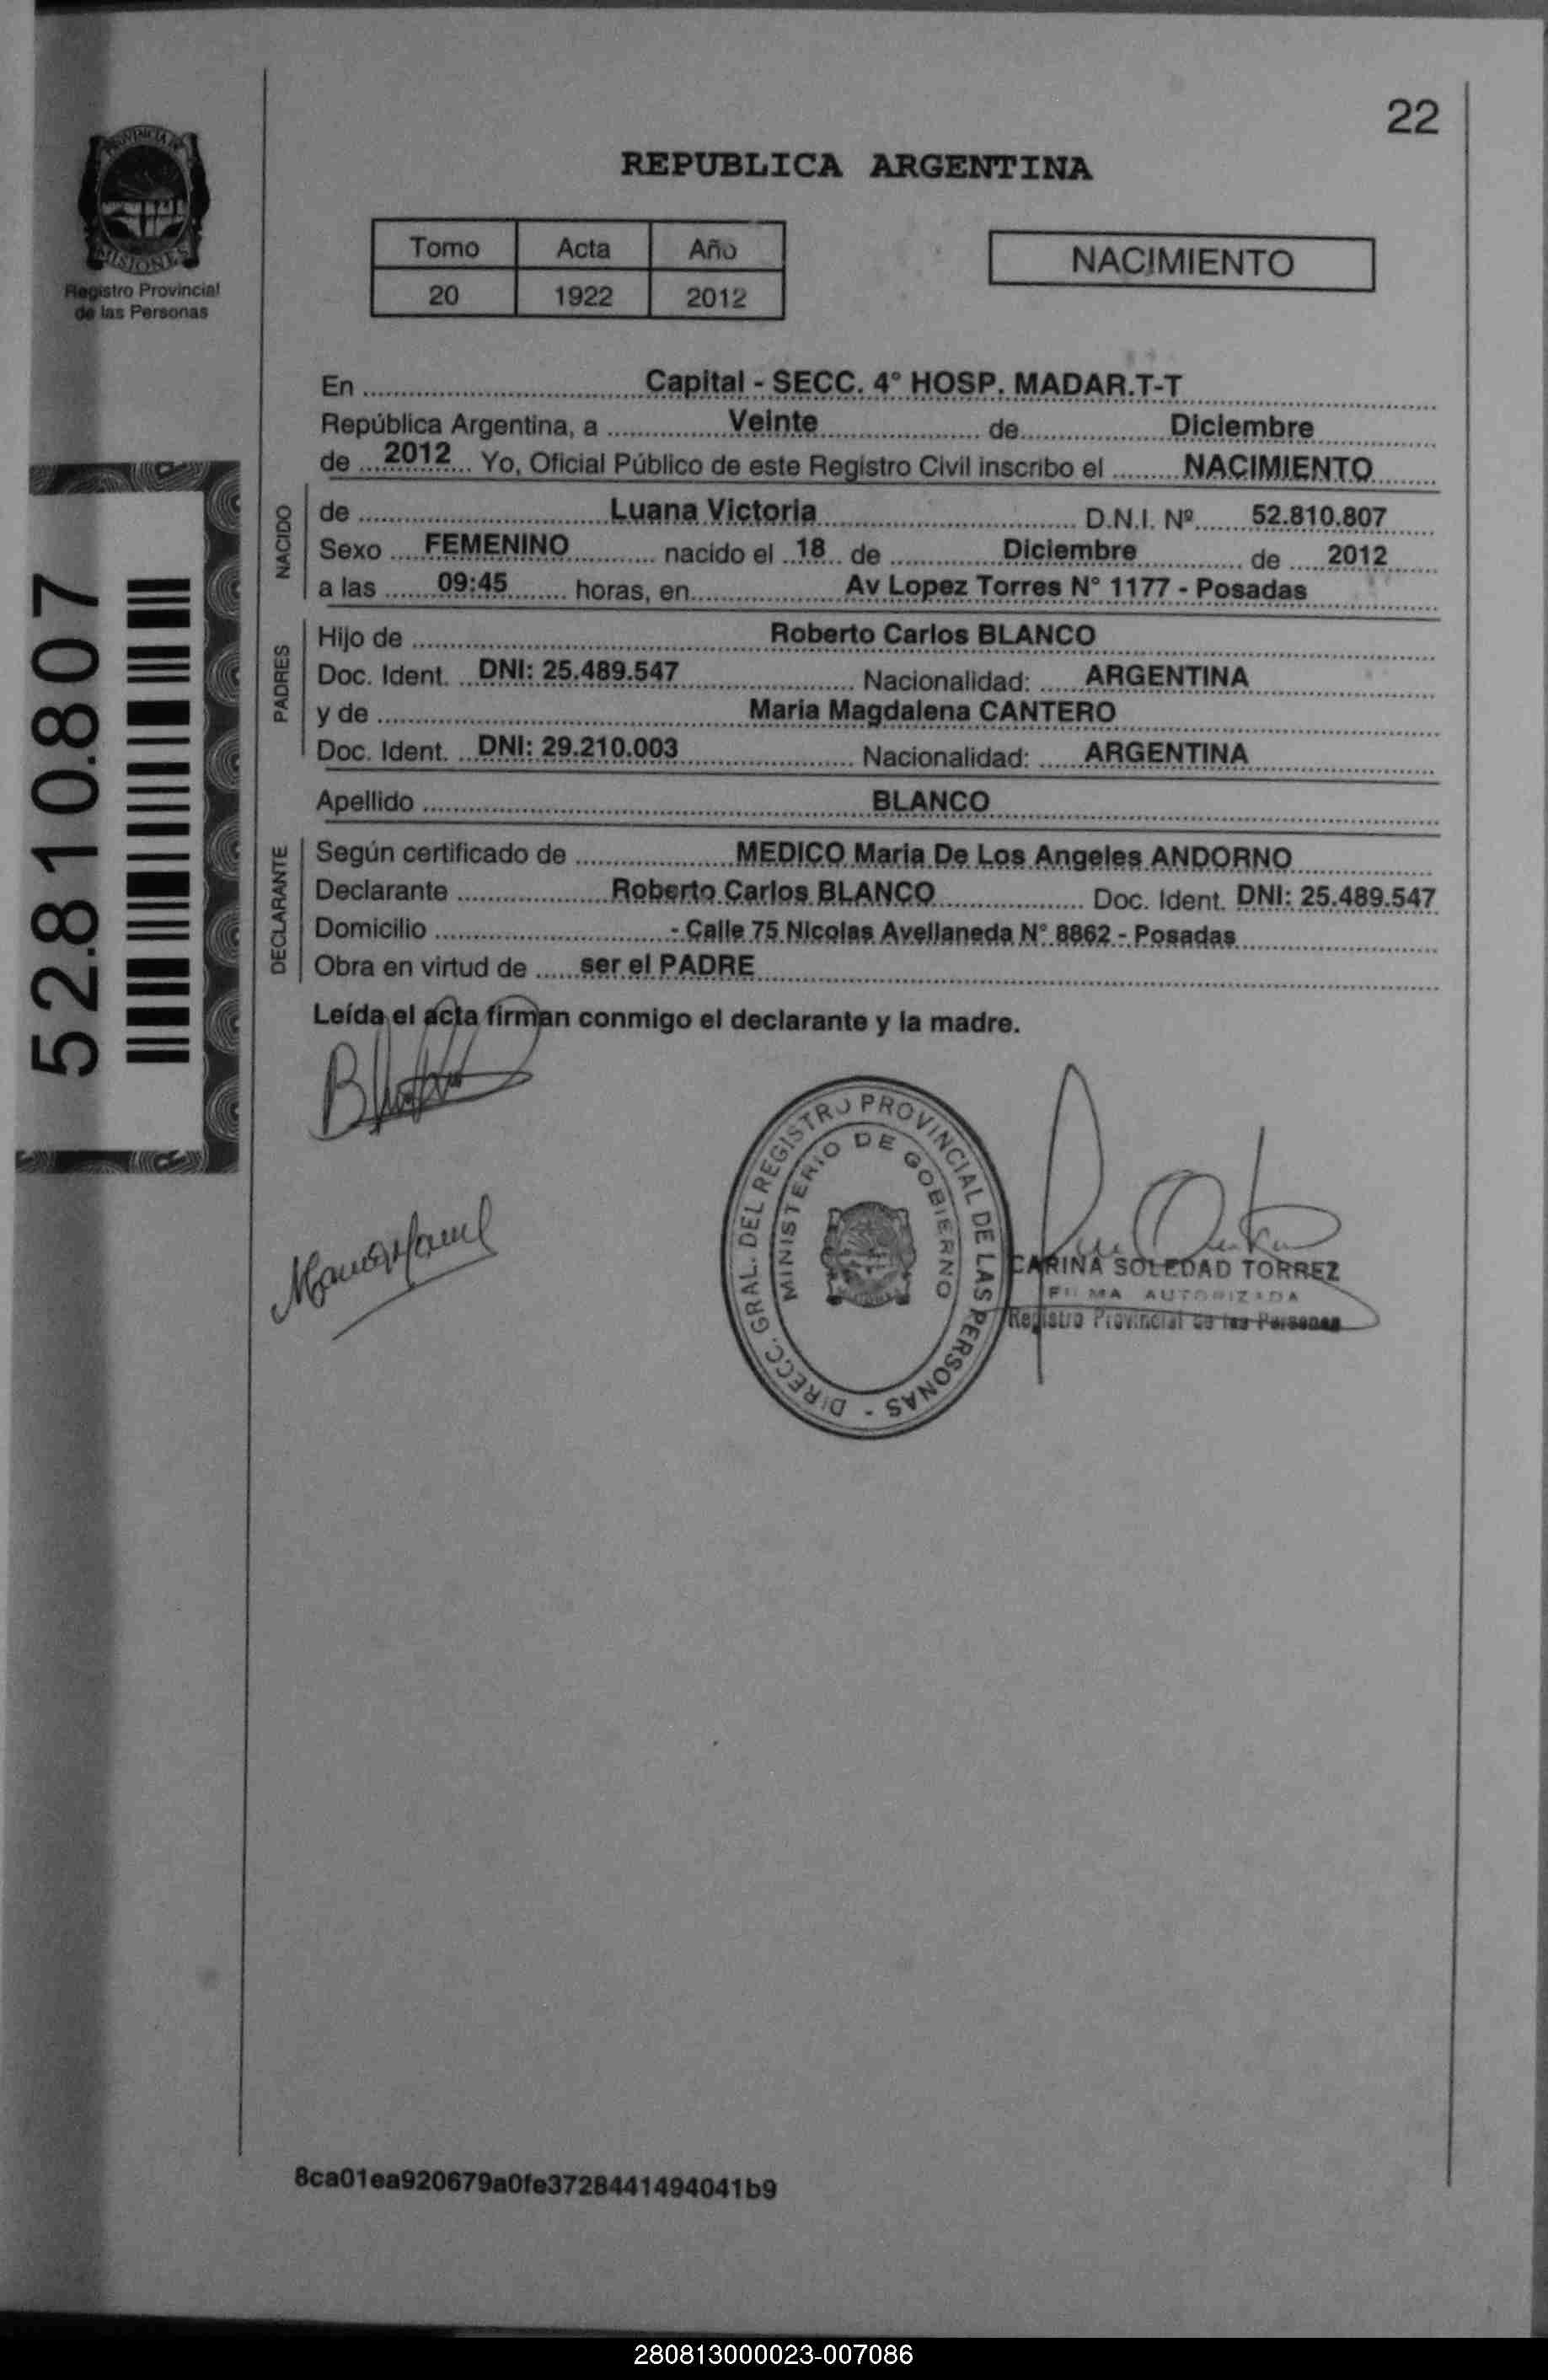 22
PROVINCIA DE
MISIONES
Registro Provincial
de las Personas
REPUBLICA ARGENTINA
Tomo Acta Año
20 1922 2012
NACIMIENTO
En Capital - SECC. 4° HOSP. MADAR.T-T
República Argentina, a Veinte de Diciembre
de 2012 Yo, Oficial Público de este Registro Civil inscribo el NACIMIENTO
NACIDO
de Luana Victoria D.N.I. Nº 52.810.807
Sexo FEMENINO nacido el 18 de Diciembre de 2012
a las 09:45 horas, en Av Lopez Torres N° 1177 - Posadas
PADRES
Hijo de Roberto Carlos BLANCO
Doc. Ident. DNI: 25.489.547 Nacionalidad: ARGENTINA
y de Maria Magdalena CANTERO
Doc. Ident. DNI: 29.210.003 Nacionalidad: ARGENTINA
Apellido BLANCO
DECLARANTE
Según certificado de MEDICO Maria De Los Angeles ANDORNO
Declarante Roberto Carlos BLANCO Doc. Ident. DNI: 25.489.547
Domicilio - Calle 75 Nicolas Avellaneda N° 8862 - Posadas
Obra en virtud de ser el PADRE
Leída el acta firman conmigo el declarante y la madre.
52.810.807
DIRECC. GRAL. DEL REGISTRO PROVINCIAL DE LAS PERSONAS -
MINISTERIO DE GOBIERNO
CARINA SOLEDAD TORREZ
FIRMA AUTORIZADA
Registro Provincial de las Personas
8ca01ea920679a0fe3728441494041b9
280813000023-007086